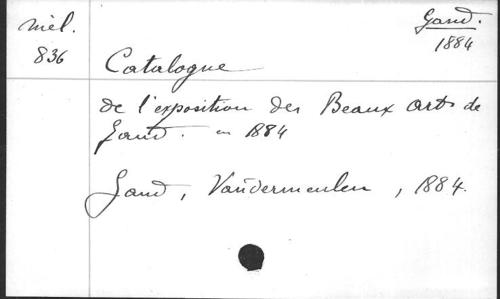 mél. 836
Gand. 1884
Catalogue
de l'exposition des Beaux arts de
Gand. en 1884
Gand, Vandermeulen, 1884.